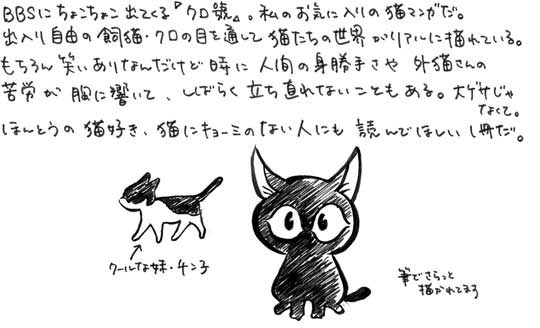 BBSにちょこちょこ出てくる『クロ號』。私のお気に入りの猫マンガだ。
出入り自由の飼猫・クロの目を通して猫たちの世界がリアルに描れている。
もちろん笑いありなんだけど時に人間の身勝手さや外猫さんの
苦労が胸に響いて、しばらく立ち直れないこともある。大ゲサじゃ
なくて。
ほんとうの猫好き、猫にキョーミのない人にも読んでほしい1冊だ。
クールな妹・チン子
筆でさらっと
描かれてます